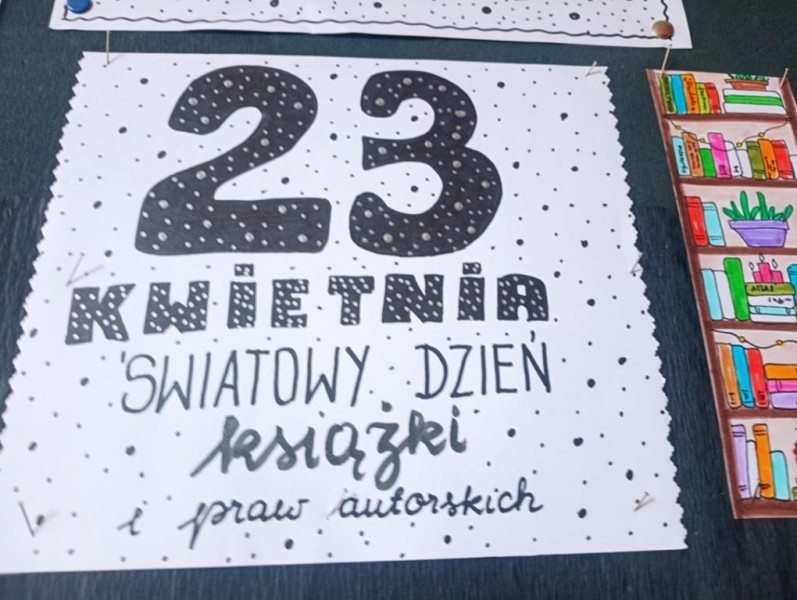 23
KWiETNiA
ŚWIATOWY DZIEŃ
książki
i praw autorskich
ATLAS